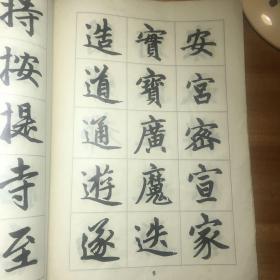 安宮密宣家
實寶廣魔迭
造道通遊遂
持按提寺至